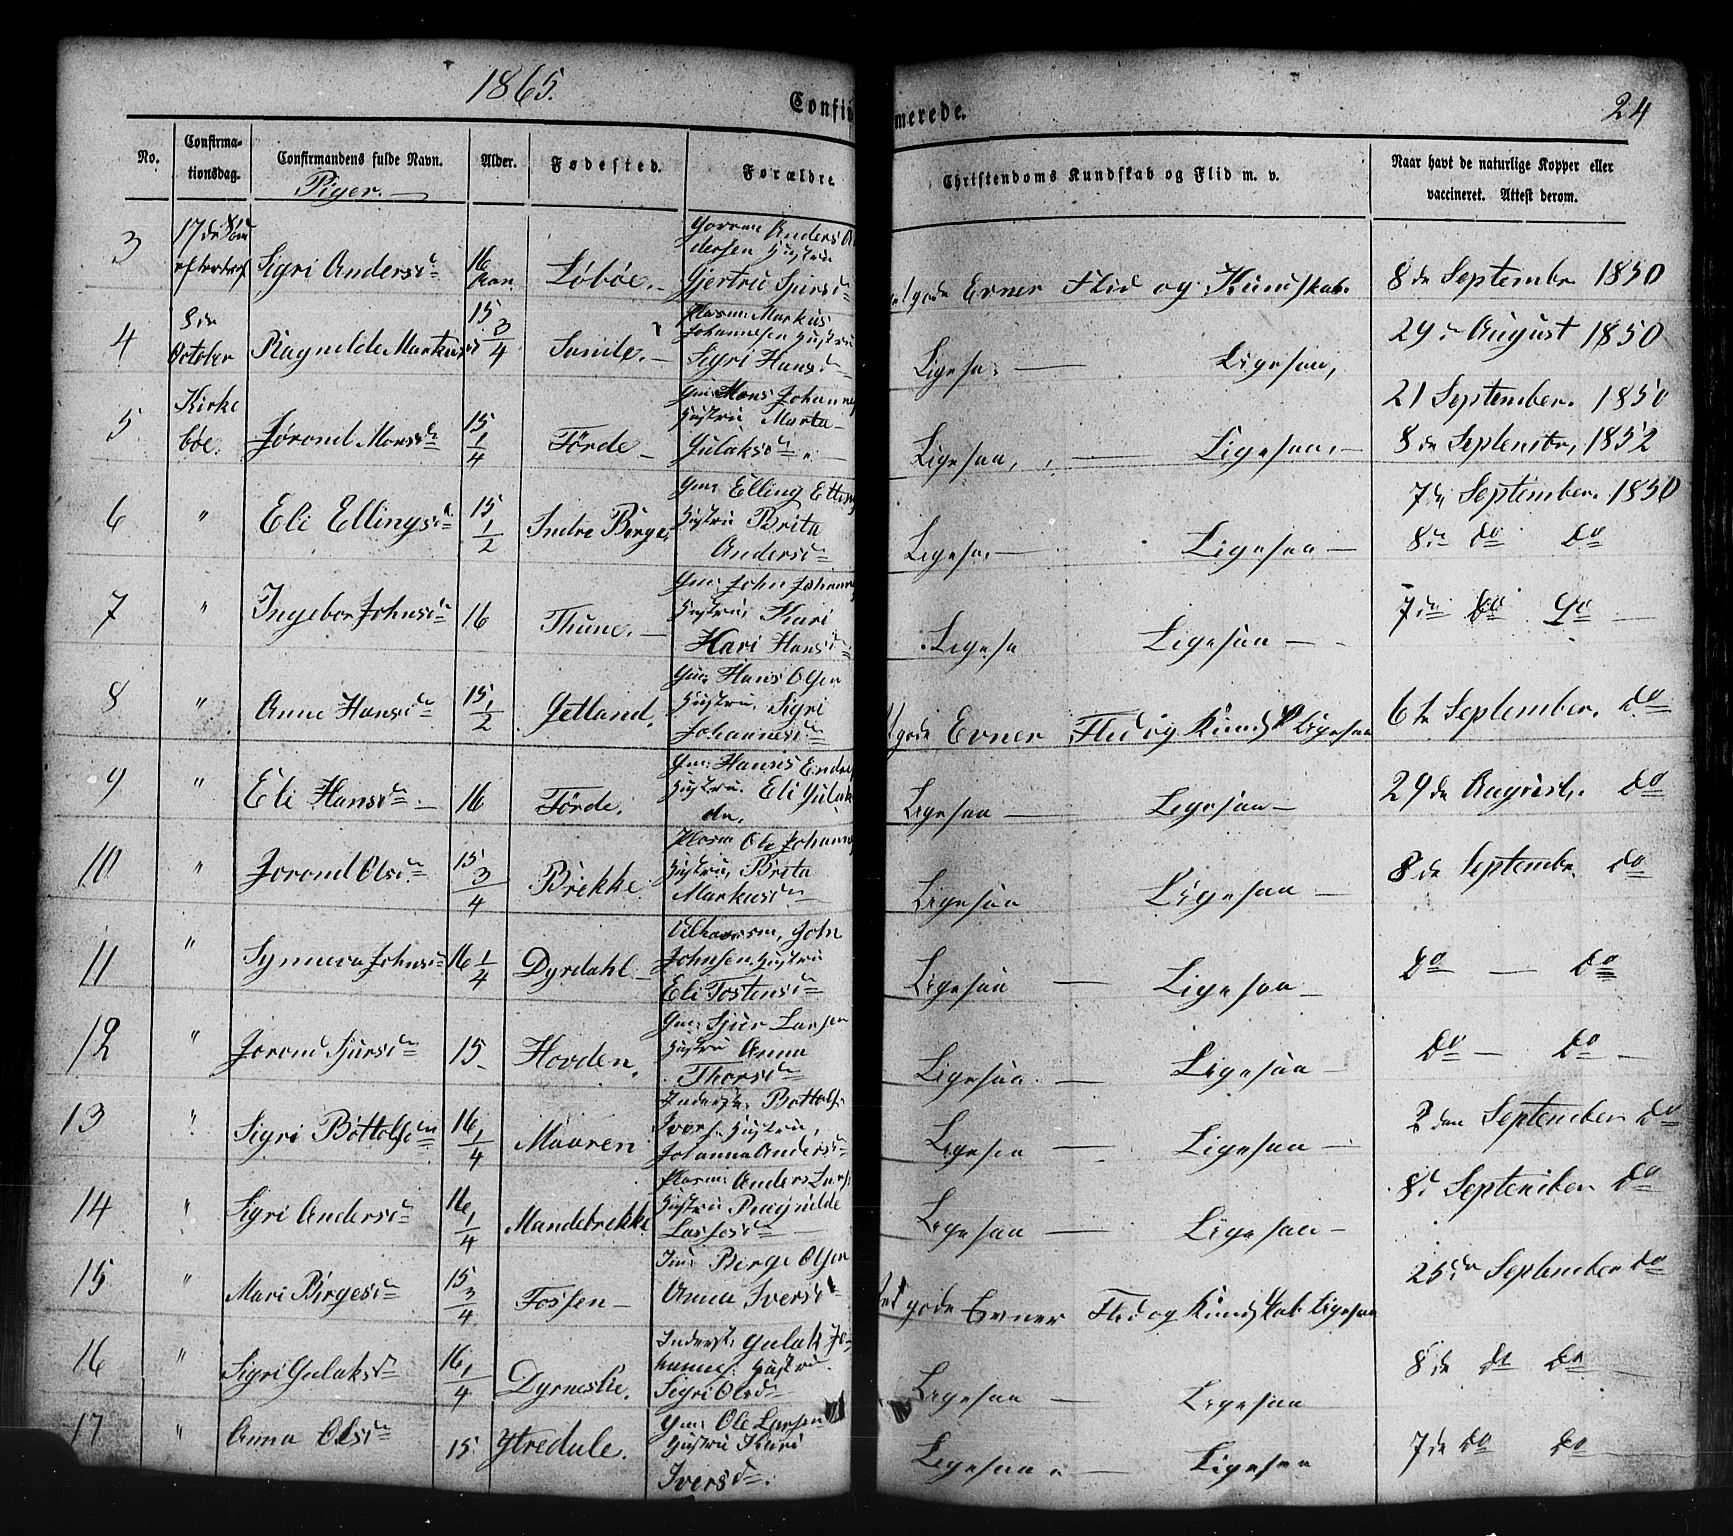 1865.
Confirmerede.
24
No.
Confirmationsdag.
Confirmandens fulde Navn.
Piger.
Alder.
Fødested.
Forældre
Christendoms Kundskab og Flid m. v.
Naar havt de naturlige Kopper eller
vaccineret. Attest derom.
3 17de Sigri Andersd 16 Løbøe. Anders
Gjertru Sjursd
gode Evner Flid og Kundskab. 8de Septembr 1850
4 8de October Ragnilde Markusd 15 3/4 Sunde. Markus
Johannesen Hustru
Sigri Hansd
Ligesaa Ligesaa, 29de August 1850
5 Kirkebøe. Jørond Monsd 15 1/4 Førde Gm: Mons Johannes
Hustru Marta
Gulaksd
21 September. 1850
Ligesaa, Ligesaa. 8de September, 1852
6 " Eli Ellingsd 15 1/2 Indre Berge. Gm: Elling Elling
Hustru Brita
Andersd
7de September. 1850
Ligesaa Ligesaa 8de do do
7 " Ingebor Johnsd 16 Thune. Gm: John Johannes
Hustru, Kari
Kari Hansd
Ligesaa Ligesaa 7de do do
8 " Anne Hansd 15 1/2 Getland. Gm: Hans Olsen
Hustru, Sigri
Johannesd
gode Evner Flid og Kundsk Ligesaa 6te September. do
9 " Eli Hansd 16 Førde. Gm: Hans
Hustru. Eli Gulaks
Ligesaa Ligesaa 29de August. do
10 " Jorond Olsd 15 3/4 Brekke Ole Johannes
Hustru, Brita
Markusd
Ligesaa Ligesaa 8de Septembr. do
11 " Synneva Johnsd 16 1/4 Dyrdahl John
Johnsen Hustru
Eli Tostensd
Ligesaa Ligesaa do do
12 " Jorond Sjursd 15 Hovden. Gm: Sjur Larsen
Hustru Anna
Thorsd
Ligesaa Ligesaa do do
13 " Sigri Bottolfsd 16 1/4 Maaren Inderst. Bottolf
Hustru,
Johanna Andersd
Ligesaa Ligesaa 2den September do
14 " Sigri Andersd 16 1/4 Mandebrekke Plasm: Anders Lars
Hustru Ragnilde
Lassesd
Ligesaa Ligesaa 8de September do
15 " Mari Birgesd 15 3/4 Fossen Birge Olsen
Anna Iversd
gode Evner Flid og Kundskab Ligesaa 25de September do
16 " Sigri Gulaksd 16 1/4 Dyrneslie. Inderst: Gulak Johannes. Hustru
Sigri Olsd
Ligesaa Ligesaa 8de do do
17 " Anna Olsd 15 Ytredale. Gm: Ole Larsen
Hustru Kari
Iversd.
Ligesaa Ligesaa 7de do do